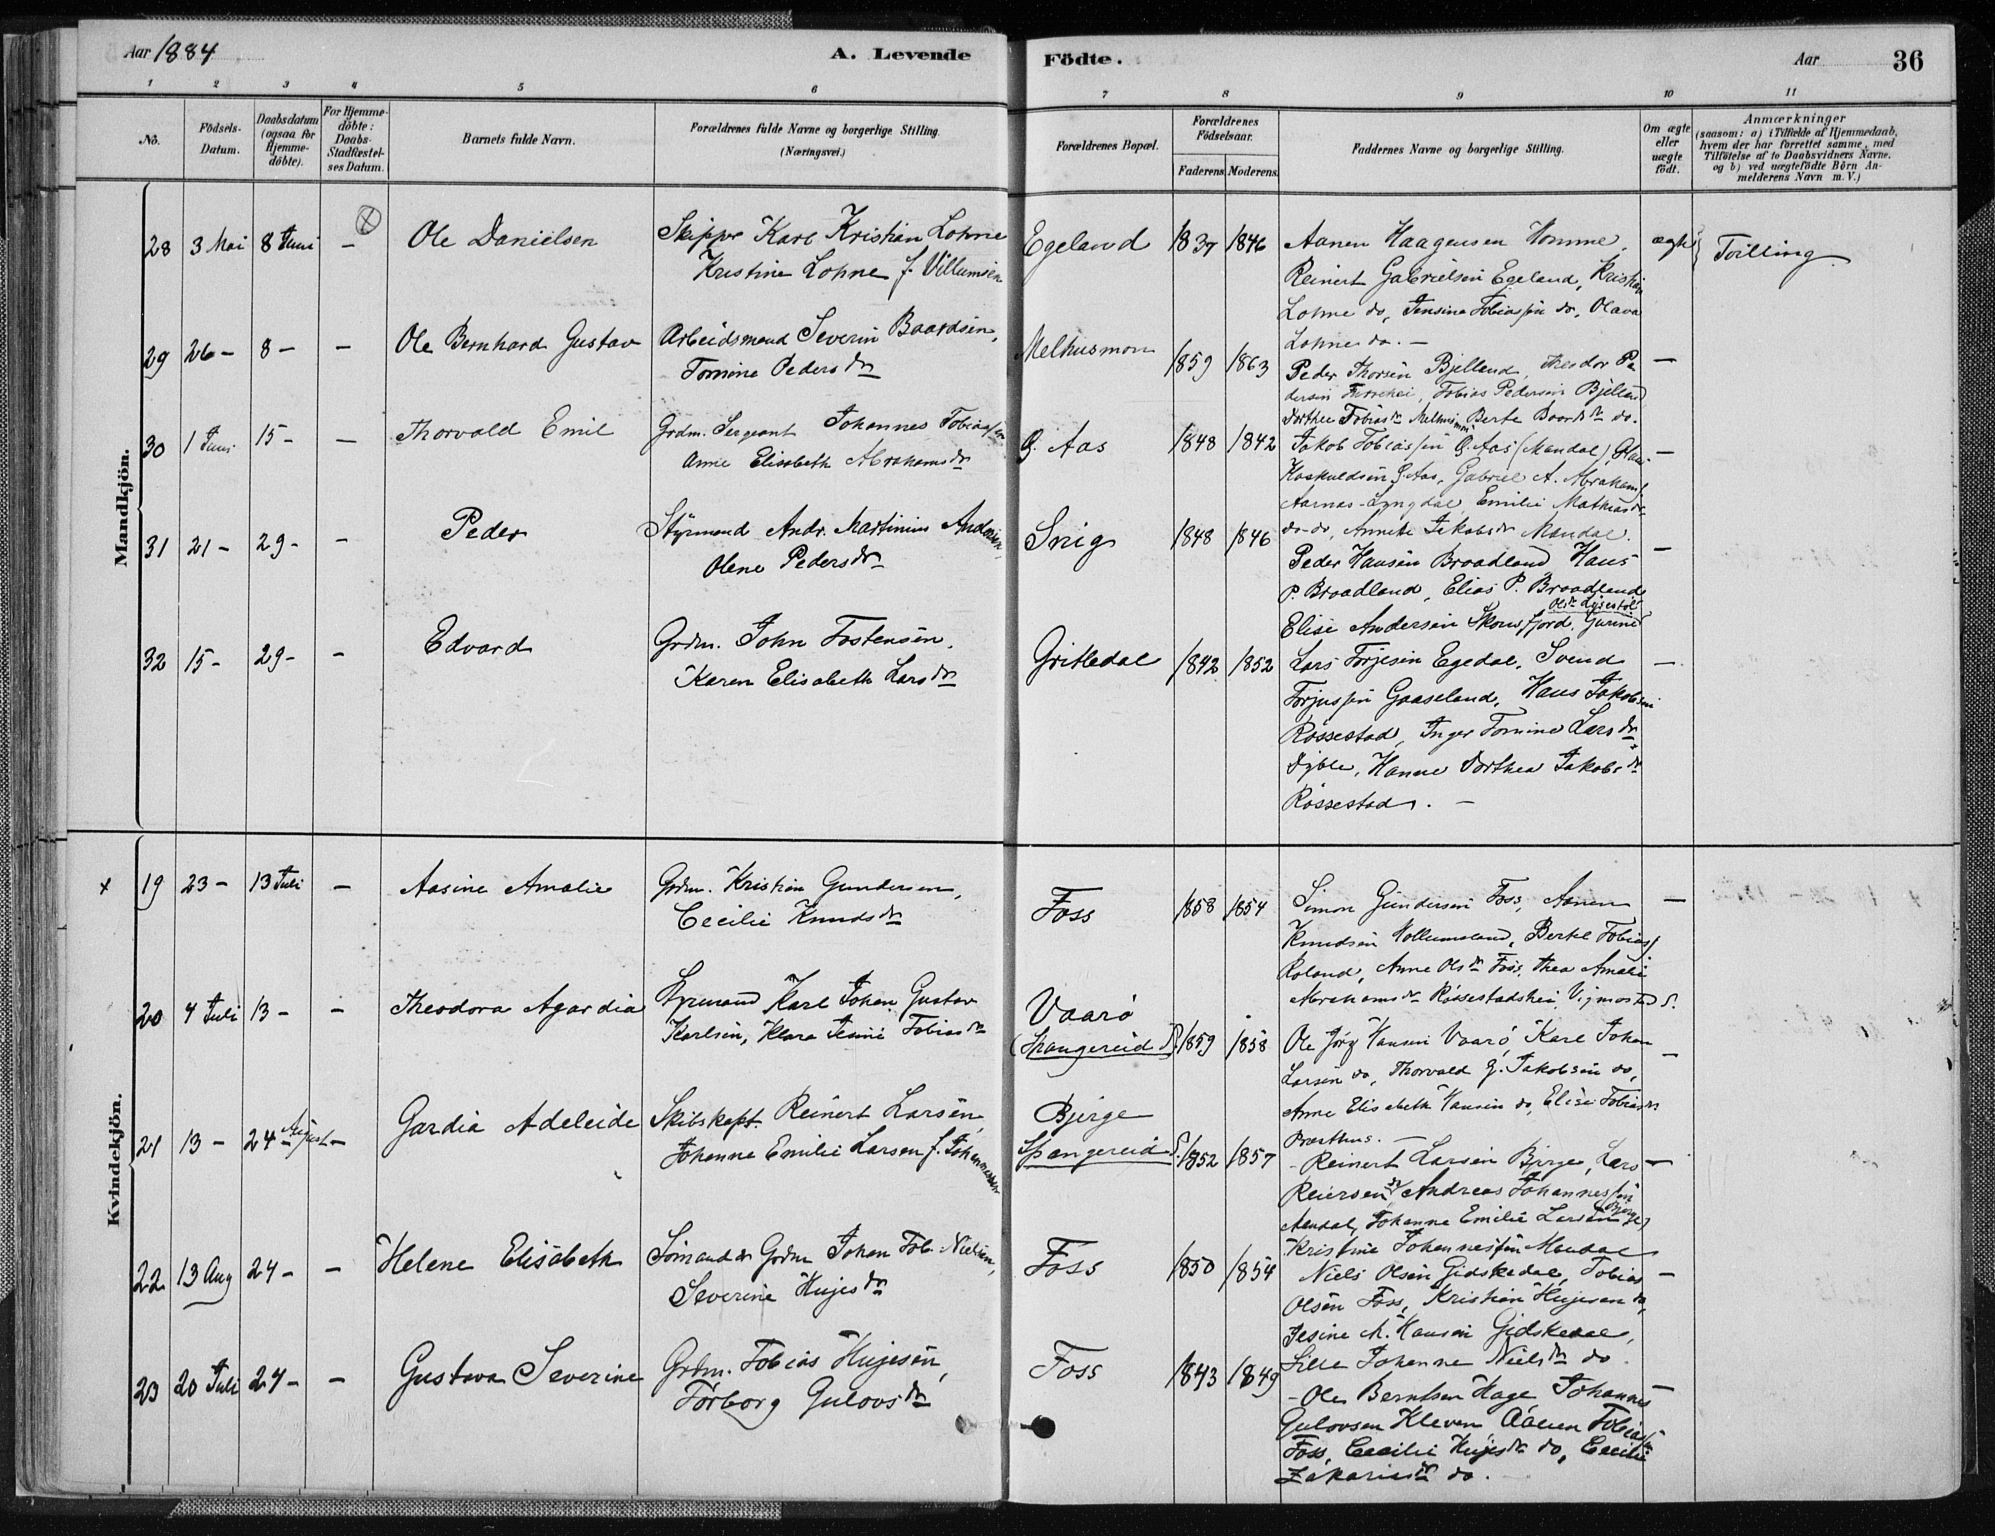 Aar 1884
A. Levende
Födte.
Aar
36
1 2 3 4 5 6 7 8 9 10 11
No.
Födsels-
Datum.
Daabsdatum
(ogsaa for
Hjemme-
döbte).
For Hjemme-
döbte:
Daabs-
Stadfæstel-
ses Datum.
Barnets fulde Navn.
Forældrenes fulde Navne og borgerlige Stilling.
(Næringsvei.)
Forældrenes Bopæl.
Forældrenes
Födselsaar.
Faderens. Moderens.
Faddernes Navne og borgerlige Stilling.
Om ægte
eller
uægte
födt.
Anmærkninger
(saasom: a) i Tilfælde af Hjemmedaab,
hvem der har forrettet samme, med
Tilföielse af to Daabsvidners Navne,
og b) ved uægtefödte Börn An-
melderens Navn m. V.)
Mandkjön.
28 3 Mai 8 Juni - Ole Danielsen
Skipper Karl Kristian Lohne
Kristine Lohne f. Villumsen
Egeland 1837 1846
Aanen Haagensen Homme,
Reinert Gabrielsen Egeland, Kristian
Lohne do, Jensine Tobiassen do, Olava
Lohne do. -
ægte
Tvilling.
29 26 - 8 - - Ole Bernhard Gustav
Arbeidsmand Severin Baardsen,
Tomine Pedersdr
Melhusmon 1859 1863
Peder Thorsen Bjelland, Theodor Pe
dersen, Tobias Pedersen Bjelland
Dorthea Tobiasdr Melhusmon Berte Baardsdr do.
-
30 1 Juni 15 - - Thorvald Emil
Grdm. Sergeant Johannes Tobiassen
Anne Elisabeth Abrahamsdr
Ø. Aas 1848 1842
Jakob Tobiassen Ø. Aas (Mandal),
Gabriel A. Abrahams.
Aarnas - Lyngdal, Emilie Mathiasdr
do-do, Annike Jakobsdr Mandal.
-
31 21 - 29 - - Peder
Styrmand Andr. Martinius Andersen,
Olene Pedersdr
Snig 1848 1846
Peder Hansen Braadland Hans
P. Braadland, Elias P. Braadland
Elise Andersen Skouvfjord, Gurine
Olsdr
-
32 15 - 29 - - Edvard
Grdm. John Tostensen,
Karen Elisabeth Larsdr
Gritledal 1842 1852
Lars Torjesen Egedal, Svend
Torjussen Gaaseland, Hans Jakobsen
Røssestad, Inger Tomine Larsdr
Dyble, Hanne Dorthea Jakobsdr
Røssestad. -
-
Kvindekjön.
x 19 23 - 13 Juli - Aasine Amalie
Grdm. Kristian Gundersen,
Cecilie Knudsdr
Foss 1858 1854
Simon Gundersen Foss, Aanen
Knudsen Vollumsland, Bertel Tobias/
Roland, Anne Olsdr Foss, Thea Amalie
Abrahamsdr Røssestadhei, Vigmostad S.
-
20 4 Juli 13 - - Theodora Agardia
Styrmand Karl Johan Gustav
Karlsen, Klara Jenine Tobiasdr
Vaarø
(Spangereid S. 1859 1858
Ole Jørg Hansen Vaarø, Karl Johan
Larsen do, Thorvald G. Jakobsen do,
Anne Elisabeth Hansen do, Elise Tobiasdr
Præsthus. -
-
21 13 - 24 August - Gardia Adeleide
Skibskapt. Reinert Larsen,
Johanne Emilie Larsen f. Johannesdr
Bjerge
Spangereid S. 1852 1857
- Reinert Larsen Bjerge, Lars
Reiersen do, Andreas Johannessen
Mandal, Johanne Emilie Larsen Bjerge
Kristine Johannessen Mandal
-
22 13 Aug 24 - - Helene Elisabeth
Sømand & Grdm Johan Tob. Nielsen,
Severine Hujesdr
Foss 1850 1854
Niels Olsen Gidskedal, Tobias
Olsen Foss, Kristian Hujesen do,
Jesine M. Hansen Gidskedal,
Sille Johanne Nielsdr do.
-
23 20 Juli 24 - - Gustava Severine
Grdm. Tobias Hujesen,
Torborg Gulovsdr
Foss 1843 1849
- Ole Berntsen Hage Johannes
Gulovsen Kleven, Aanen Tobiassen
Foss, Cecilie Hujesdr do, Cecilie
Zakariasdr do. -
-